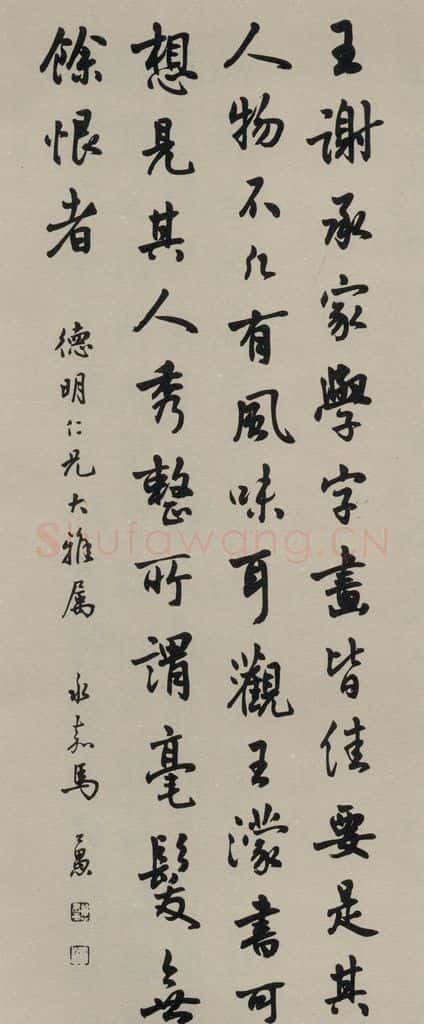 王謝承家學字畫皆佳要是其
人物不凡有風味耳觀王濛書可
想見其人秀整所謂毫髮無
餘恨者
德明仁兄大雅属 永嘉馬公愚
Shufawang.CN